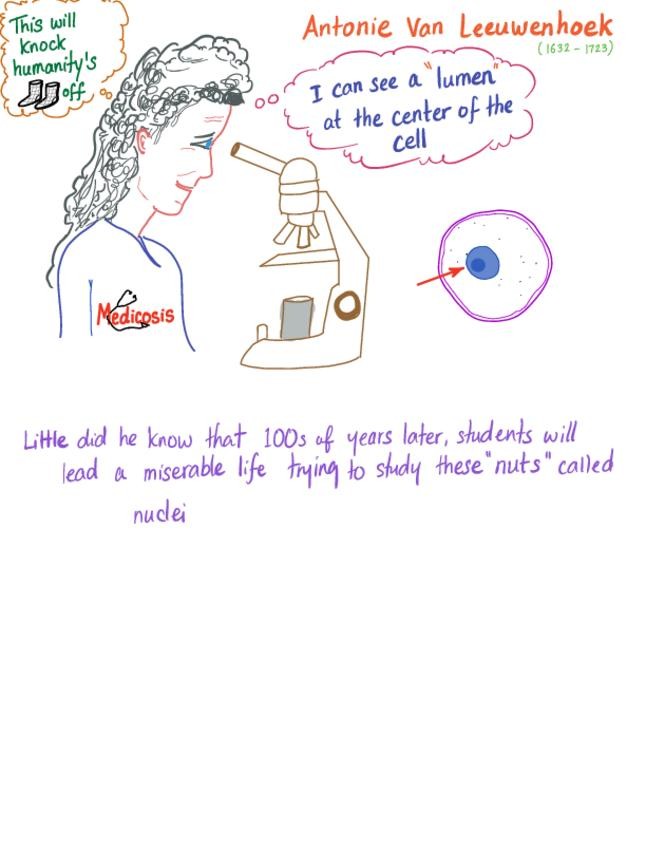 This will
knock
humanity's
off
Antonie Van Leeuwenhoek
(1632 - 1723)
I can see a "lumen"
at the center of the
cell
Medicosis
Little did he know that 100s of years later, students will
lead a miserable life trying to study these "nuts" called
nuclei